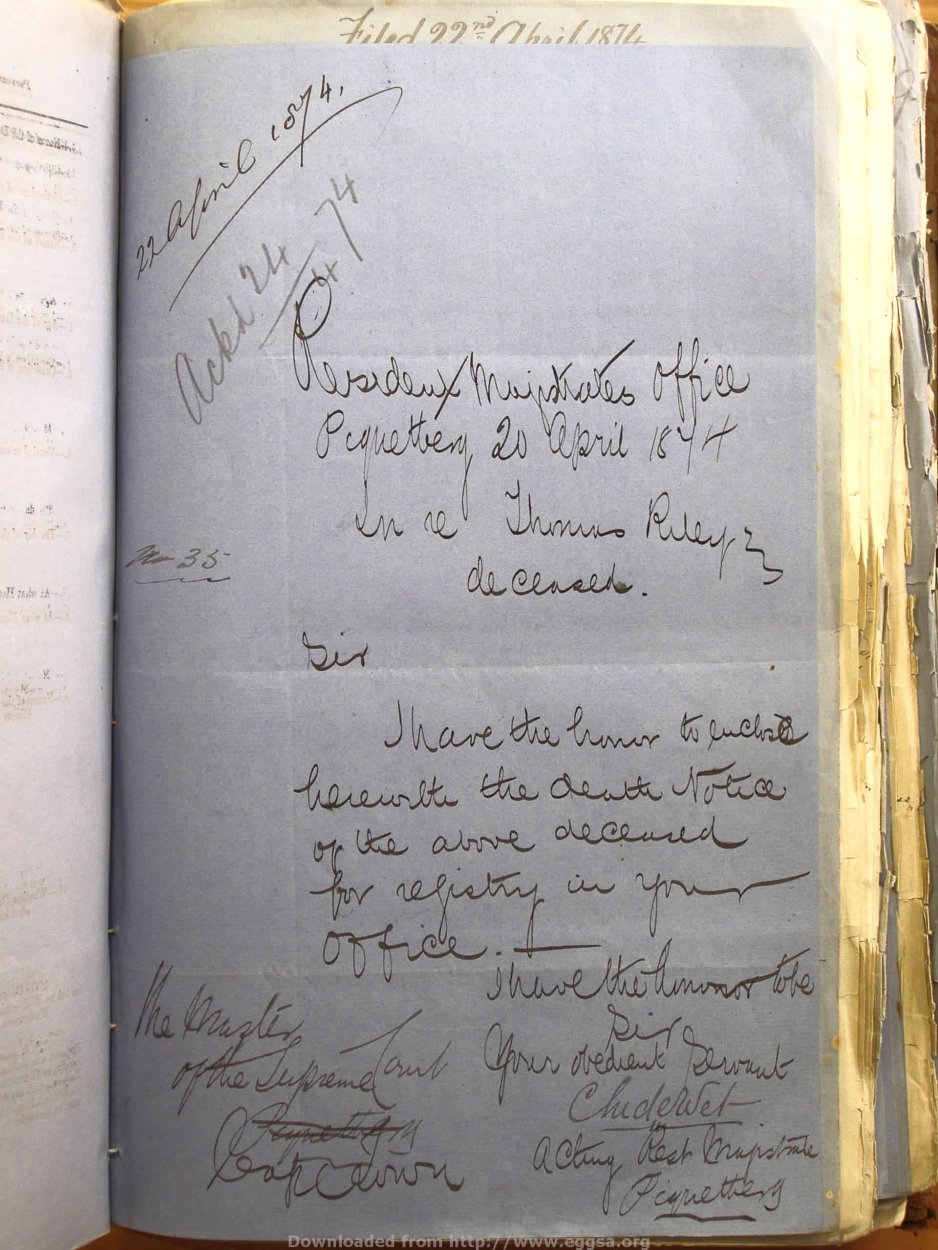 Filed 22nd April 1874
22 April 1874.
Ackd 24/4/74
Resident Magistrates Office
Piquetberg 20 April 1874
In re Thomas Riley
deceased.
No 35
Sir
I have the honor to enclose
herewith the death Notice
of the above deceased
for registry in your
office.
I have the honor to be
Sir
Your obedient Servant
deWet
Acting Rest Magistrate
Piquetberg
The Master
of the Supreme Court
Piquetberg
Capetown
Downloaded from http://www.eggsa.org